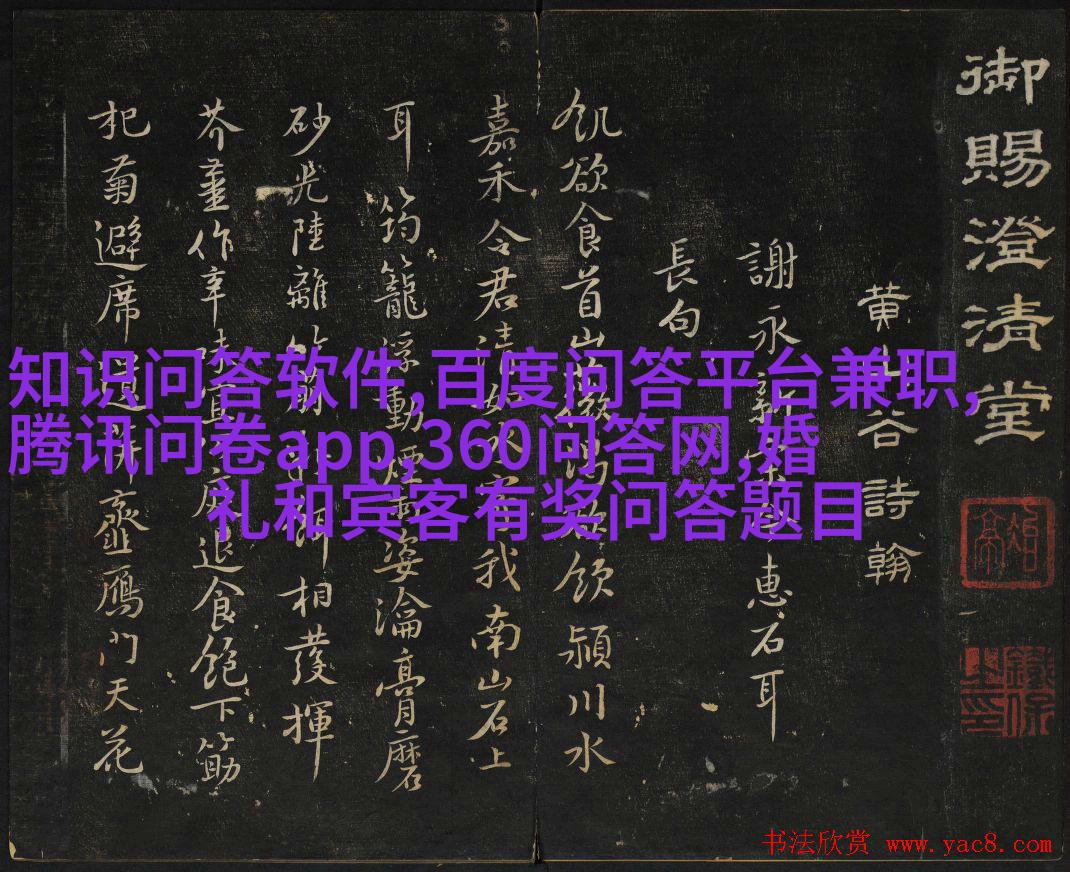 御賜澄清堂
黄山谷詩翰
謝永新惠石耳
長句
飢欲食首山飲潁川水
嘉禾令君清我南山石上
耳筠籠浮動煙姿瀹膏磨
砂光陸離相發揮
芥薑作辛退食飽下筯
杞菊避席虀鴈門天花
知识问答软件,百度问答平台兼职,
腾讯问卷app,360问答网,婚
礼和宾客有奖问答题目
书法欣赏 www.yac8.com